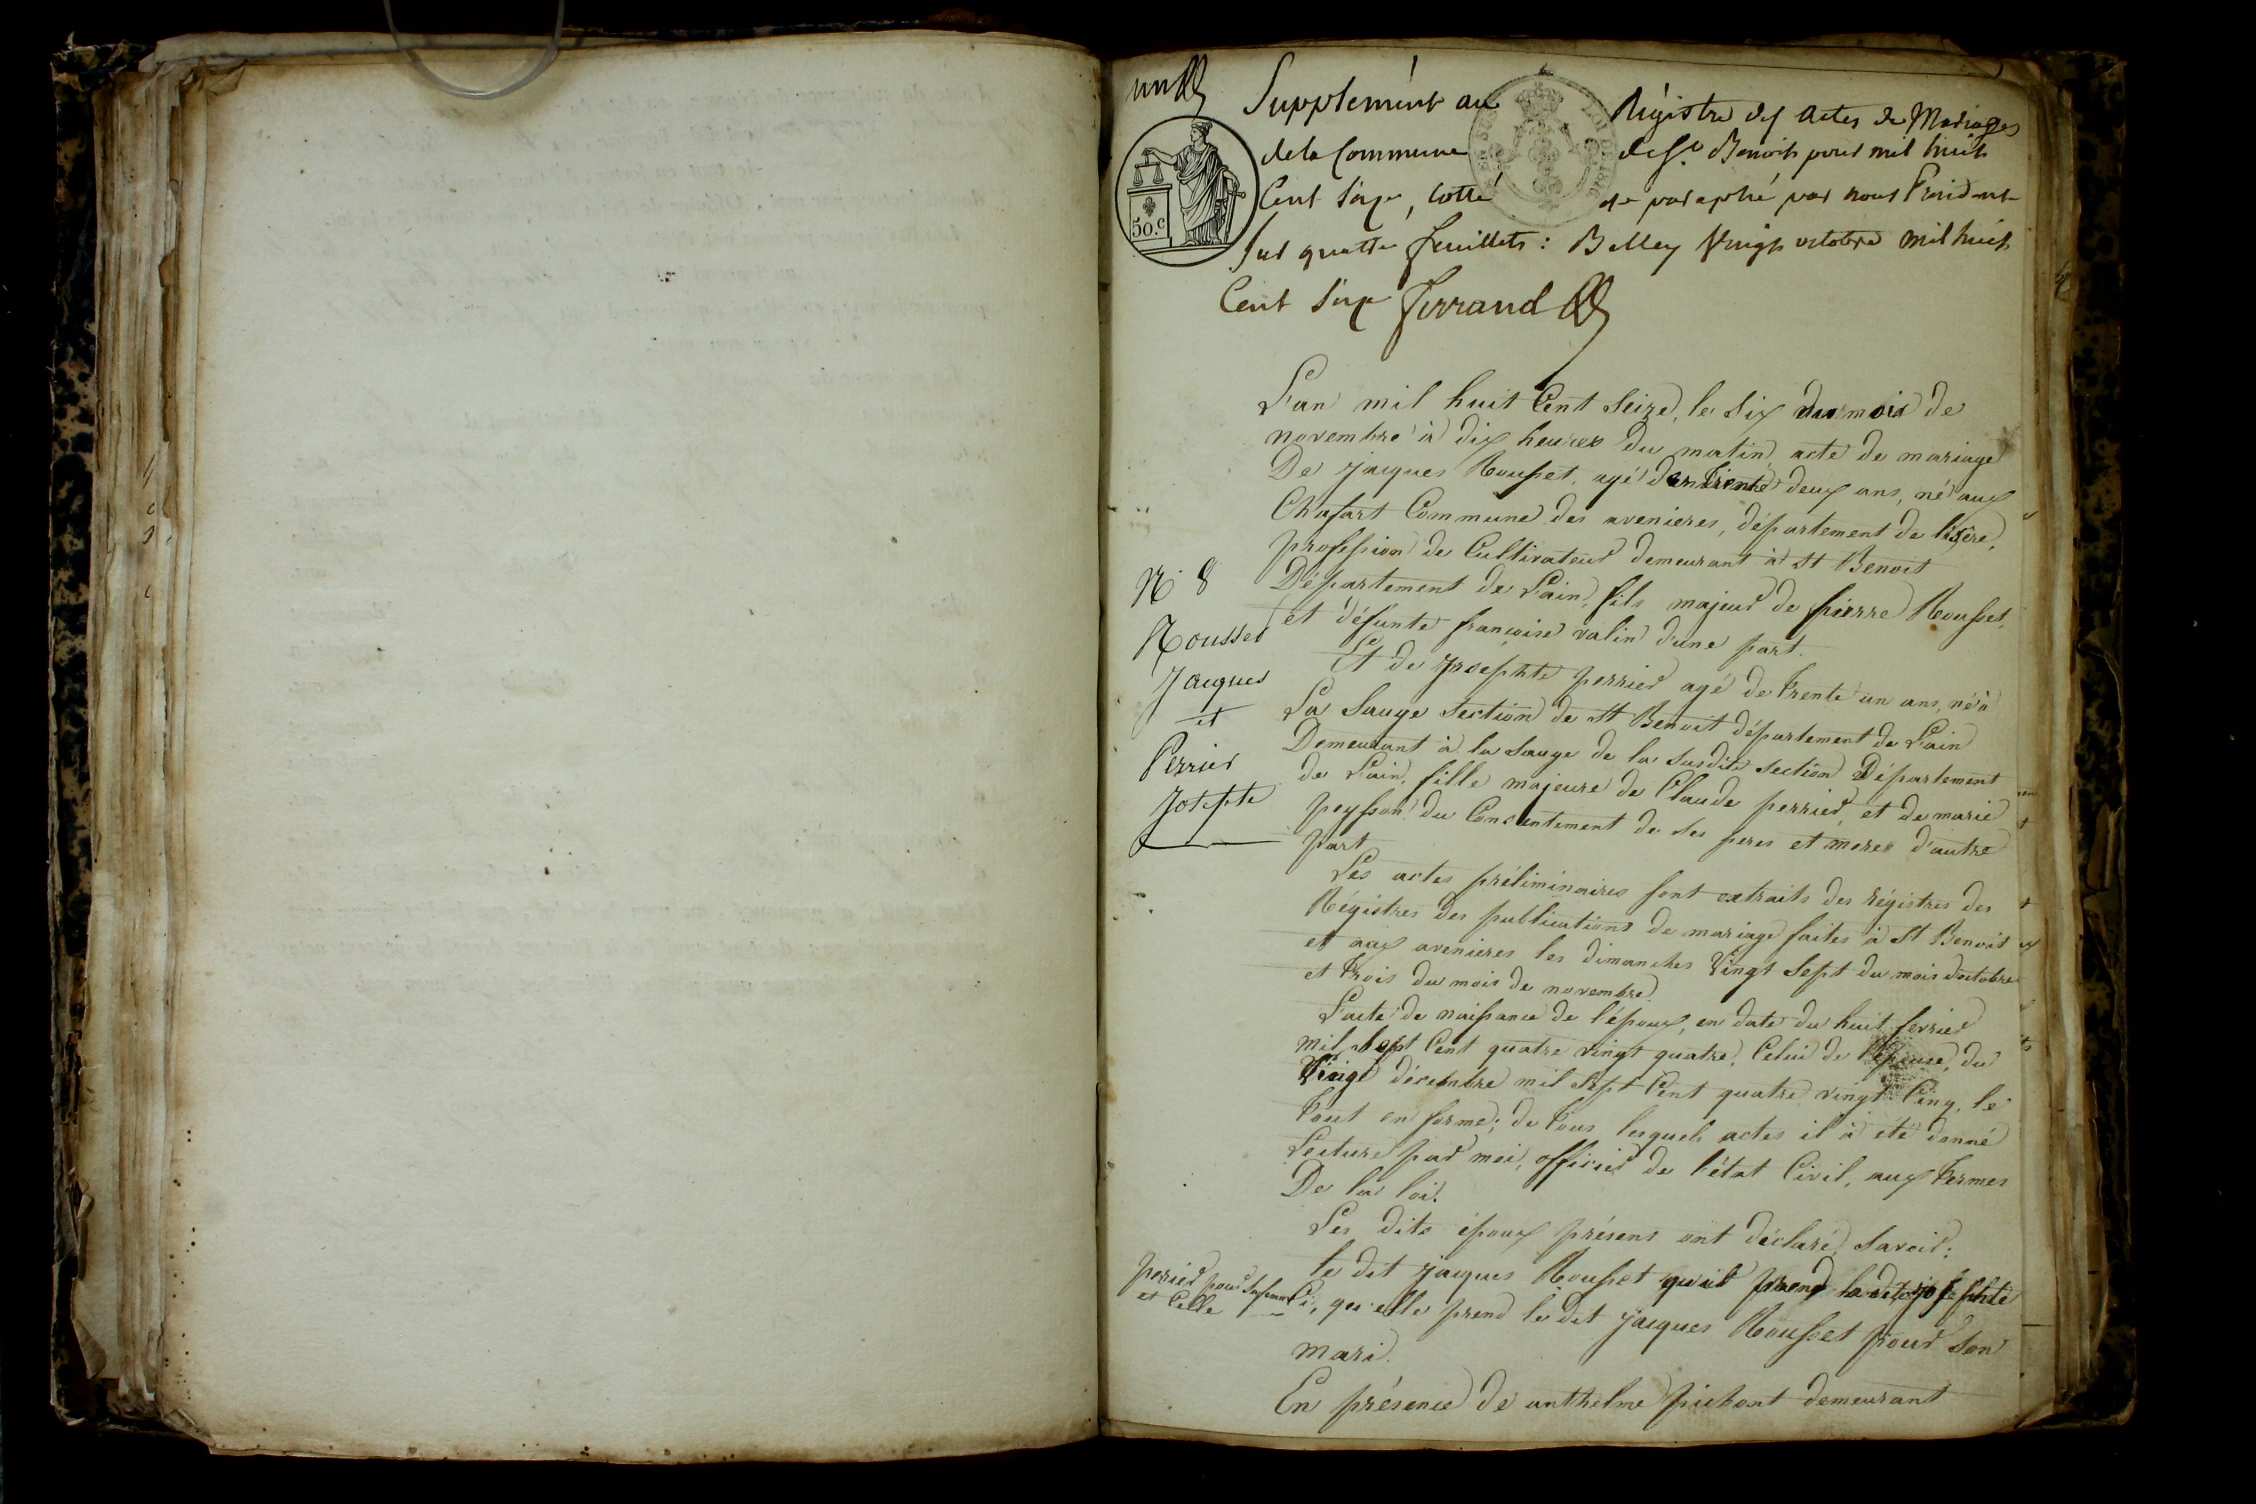 un
Supplément au Régistre des Actes de Mariages
de la Commune de St Benoit pour mil huit
Cent Seize, cotté et paraphé par nous Président
Sur quatre feuillets: Belley Vingt octobre mil huit
Cent Seize Ferrand
50.c
LOI DE 1816
L'an mil huit Cent Seize, le Six du mois de
novembre à dix heures du matin, acte de mariage
De jacques Rousset, agé de trente deux ans, né aux
Chafart Commune des avenieres, département de l'isère,
profession de Cultivateur demeurant à St Benoit
Département de L'ain, fils majeur de pierre Rousset,
et défunte françoise valin d'une part.
Et de josephte perrier agé de trente un ans, né à
La Sauge Section de St Benoit département de L'ain
Demeurant à la Sauge de la susdite section Département
de L'ain, fille majeure de Claude perrier, et de marie
peysson du Consentement de ses peres et meres d'autre
part
Les actes préliminaires sont extraits des régistres des
Régistres des publications de mariage faites à St Benoit
et aux avenieres les dimanches Vingt Sept du mois d'octobre
et trois du mois de novembre.
L'acte de naissance de l'époux, en date du huit fevrier
mil Sept Cent quatre vingt quatre. Celui de l'épouse, du
Vingt décembre mil Sept Cent quatre vingt Cinq, le
tout en forme; de tous lesquels actes il à été donné
Lecture par moi, officier de l'état Civil, aux termes
De la loi.
Les dits époux présens ont déclaré, Savoir:
le dit jacques Rousset qu'il prend la dite josephte
Ci, qu'elle prend le dit jacques Rousset pour Son
mari.
En présence de anthelme pichont demeurant
N. 8
Rousset
Jacques
et
Perrier
Josephte
perier pour Sa femme
et Celle